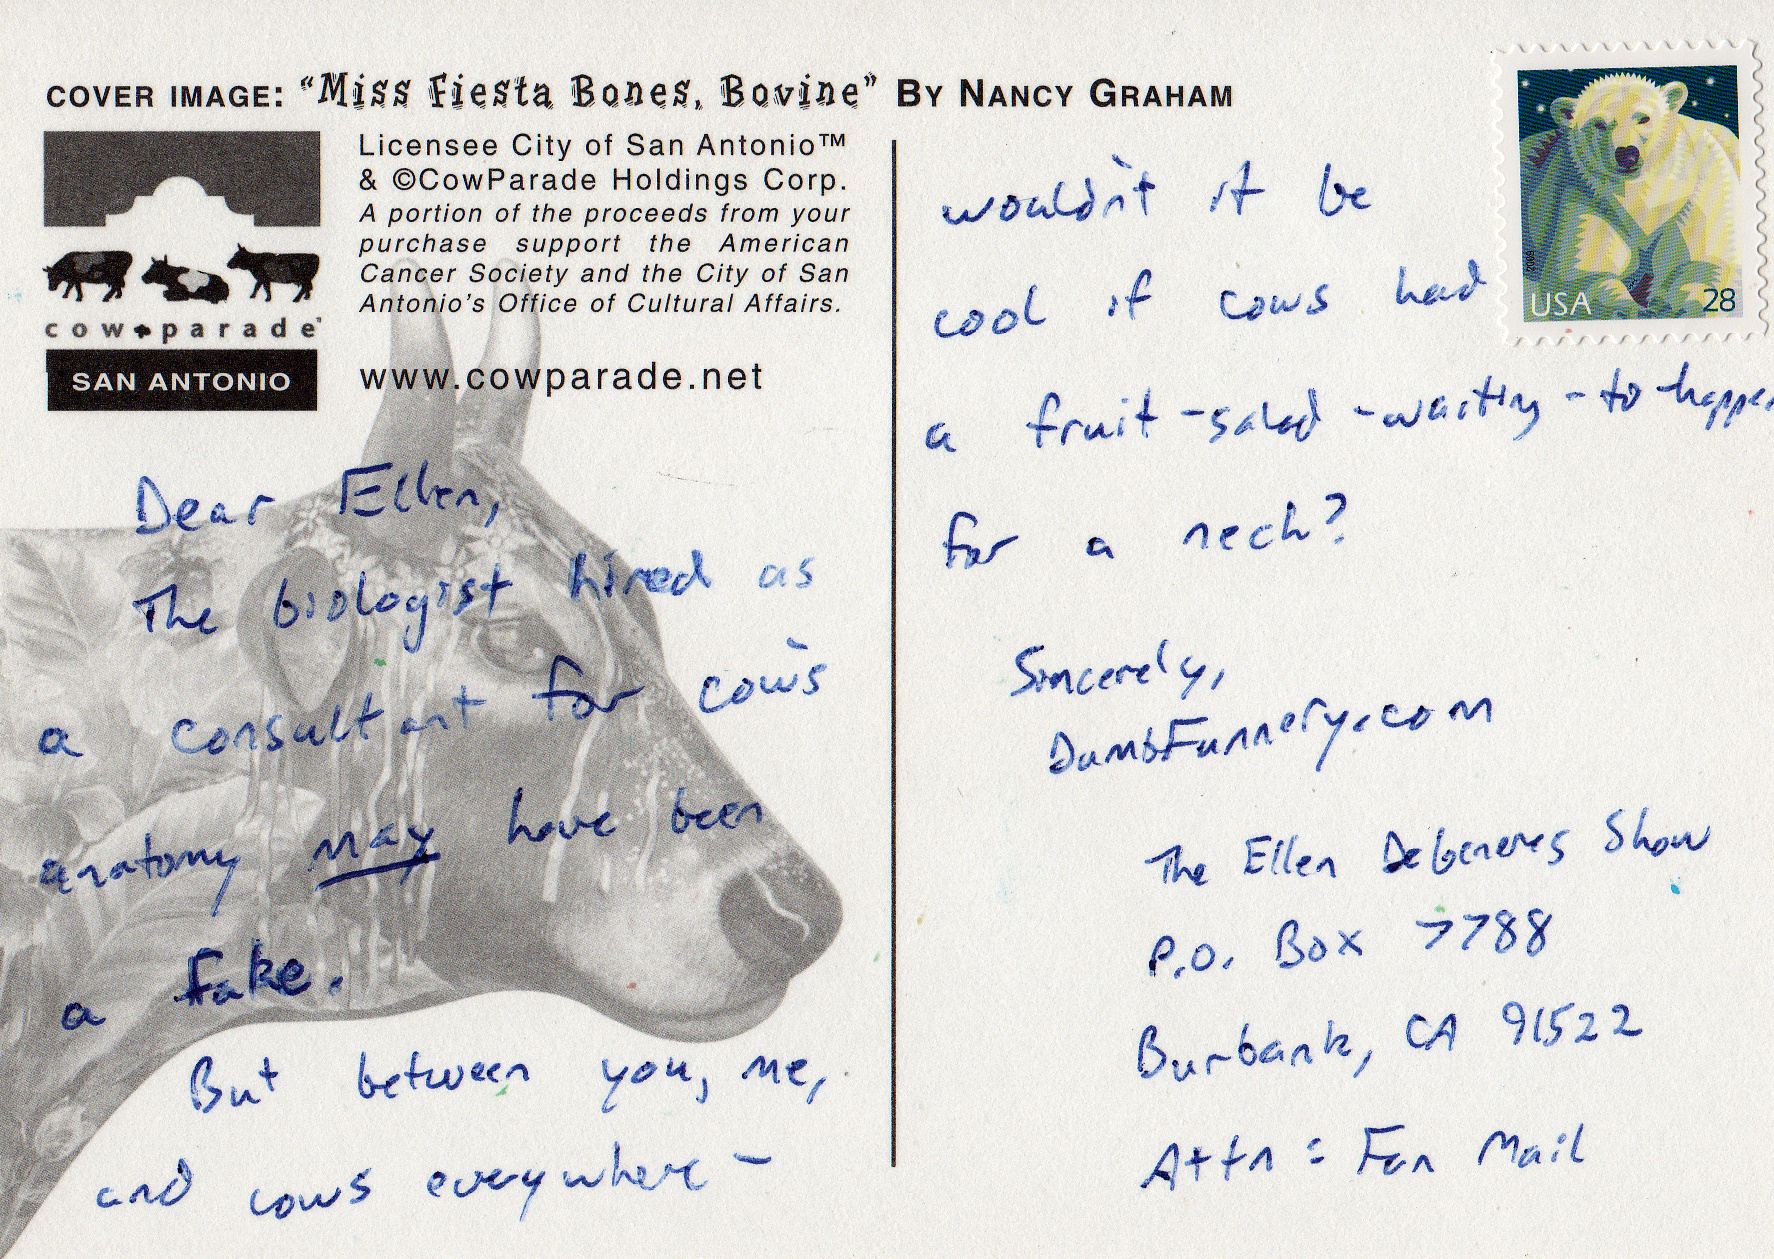 COVER IMAGE: "Miss Fiesta Bones, Bovine" BY NANCY GRAHAM
Licensee City of San Antonio™
& ©CowParade Holdings Corp.
A portion of the proceeds from your
purchase support the American
Cancer Society and the City of San
Antonio's Office of Cultural Affairs.
www.cowparade.net
cow parade
SAN ANTONIO
Dear Ellen,
The biologist hired as
a consultant for cow's
anatomy may have been
a fake.
But between you, me,
and cows everywhere -
wouldn't it be
cool if cows had
a fruit-salad-waiting-to-happen
for a neck?
Sincerely,
DumbFunnery.com
The Ellen DeGeneres Show
P.O. Box 7788
Burbank, CA 91522
Attn: Fan Mail
USA 28